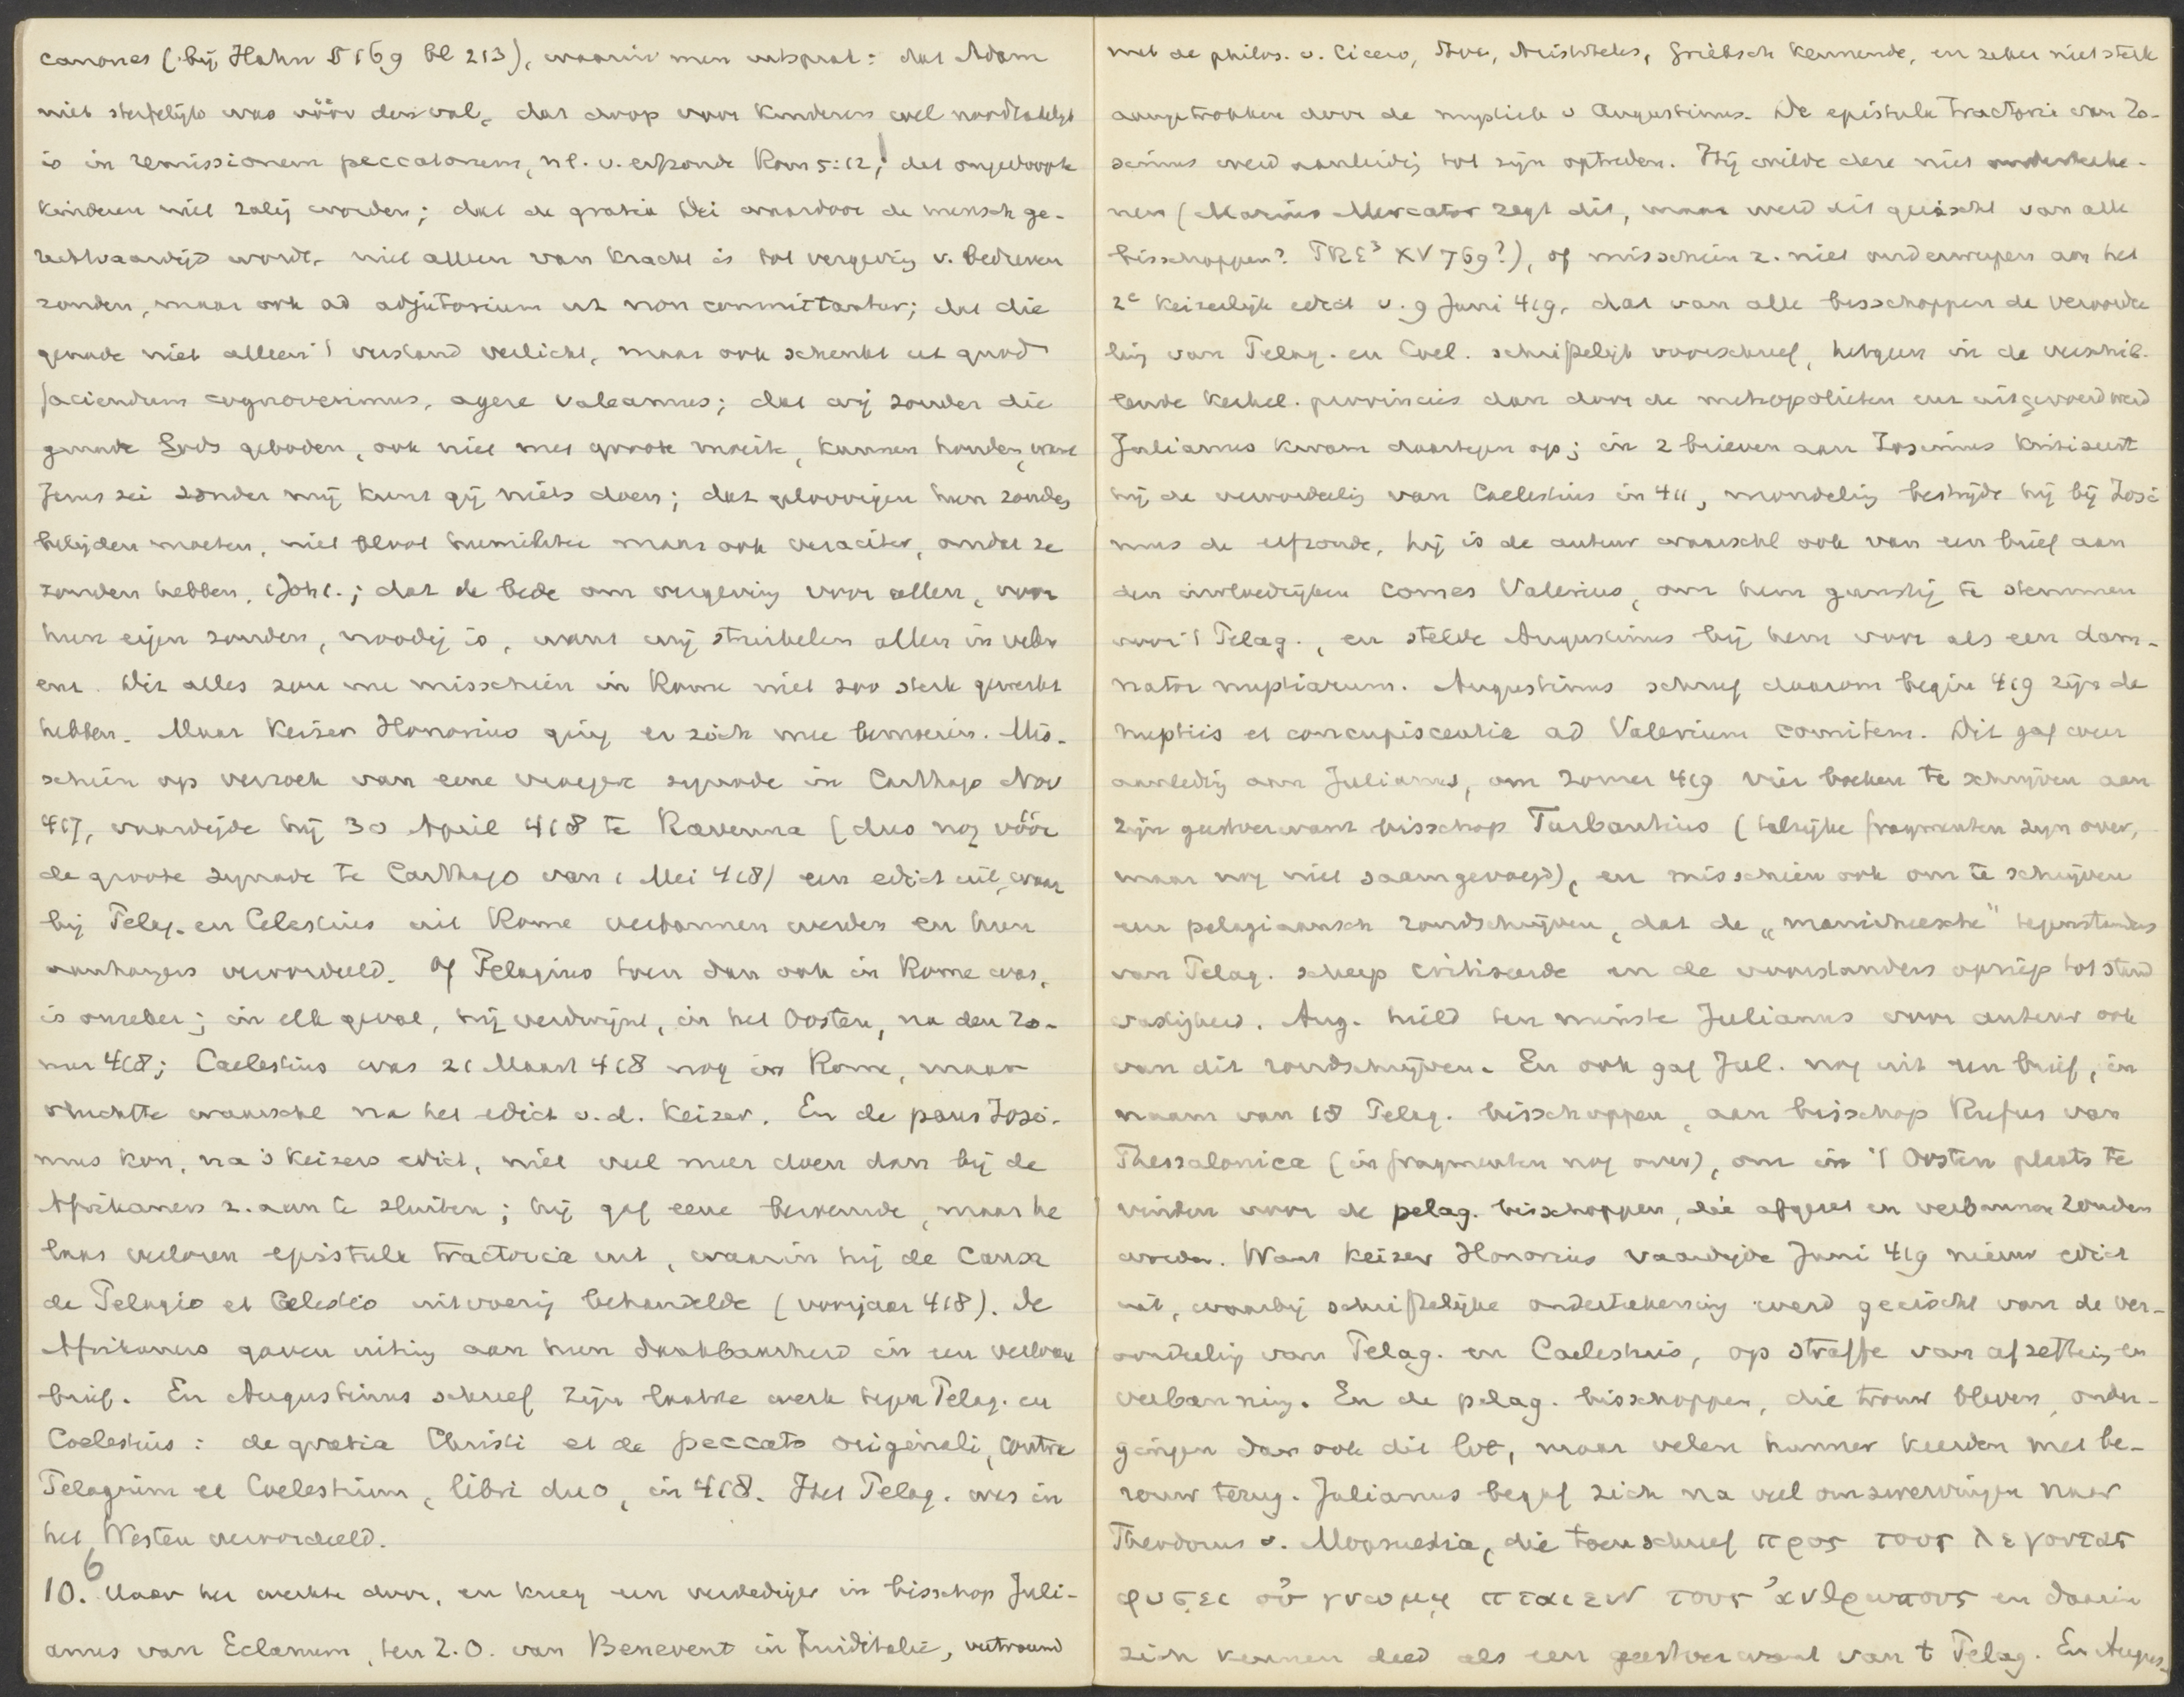 canones (bij Hahn § 169 bl 213), waarin men uitsprak: dat Adam
niet sterfelijk was vóór den val, dat doop voor kinderen wel noodzakelijk
is in remissionem peccatorum, nl. v. erfzonde Rom 5:12; dat ongedoopte
kinderen niet zalig worden; dat de gratia Dei waardoor de mensch ge-
rechtvaardigd wordt, niet alleen van kracht is tot vergeving v. bedreven
zonden, maar ook ad adjutorium ut non committantur; dat die
genade niet alleen 't verstand verlicht, maar ook schenkt ut quod
faciendum cognoverimus, agere valeamus; dat wij zonder die
genade Gods geboden, ook niet met groote moeite, kunnen houden, want
Jezus zei zonder mij kunt gij niets doen; dat geloovigen hun zonden
belijden moeten, niet bloot humiliter maar ook veraciter, omdat ze
zonden hebben, 1 Joh 1.; dat de bede om vergeving voor allen, voor
hun eigen zonden, noodig is, want wij struikelen allen in velen
enz. Dit alles zou nu misschien in Rome niet zoo sterk gewerkt
hebben. Maar Keizer Honorius ging er zich mee bemoeien. Mis-
schien op verzoek van eene vroegere synode in Carthago Nov
417, vaardigde hij 30 April 418 te Ravenna (dus nog vóór
de groote synode te Carthago van 1 Mei 418) een edict uit, waar
bij Pelag. en Celestius uit Rome verbannen werden en hun
aanhangers veroordeeld. Of Pelagius toen dan ook in Rome was,
is onzeker; in elk geval, hij verdwijnt, in het Oosten, na den zo-
mer 418; Caelestius was 21 Maart 418 nog in Rome, maar
vluchtte waarschl na het edict v.d. Keizer. En de paus Zosi-
mus kon, na 's Keizers edict, niet veel meer doen dan bij de
Afrikaners z. aan te sluiten; hij gaf eene beroemde, maar he
laas verloren epistula tractoria uit, waarin hij de causa
de Pelagio et Celestio uitvoerig behandelde (voorjaar 418). De
Afrikaners gaven uiting aan hun dankbaarheid in een verloren
brief. En Augustinus schreef zijn laatste werk tegen Pelag. en
Coelestius: de gratia Christi et de peccato originali, contra
Pelagium et Coelestium, libri duo, in 418. Het Pelag. was in
het Westen veroordeeld.
10. 6 Maar het werkte door, en kreeg een verdediger in bisschop Juli-
anus van Eclanum, ten Z.O. van Benevent in Zuiditalië, vertrouwd
met de philos. v. Cicero, Stoa, Aristoteles, Grieksch kennende, en zeker niet sterk
aangetrokken door de mystiek v Augustinus. De epistula tractoria van Zo-
simus werd aanleiding tot zijn optreden. Hij wilde deze niet onderteeke-
nen (Marius Mercator zegt dit, maar werd dit geëischt van alle
bisschoppen? PRE³ XV 769?), of misschien z. niet onderwerpen aan het
2e keizerlijke edict v. 9 Juni 419, dat van alle bisschoppen de veroorde
ling van Pelag. en Coel. schriftelijk voorschreef, hetgeen in de verschil-
lende kerkel. provincies dan door de metropolieten enz uitgevoerd werd
Julianus kwam daartegen op; in 2 brieven aan Zosimus kritiseert
hij de veroordeeling van Caelestius in 411, mondeling bestrijdt hij bij Zosi
mus de erfzonde, hij is de auteur waarschl ook van een brief aan
den invloedrijken Comes Valerius, om hem gunstig te stemmen
voor 't Pelag., en stelde Augustinus bij hem voor als een dam-
nator nuptiarum. Augustinus schreef daarom begin 419 zijn de
nuptiis et concupiscentia ad Valerium comitem. Dit gaf weer
aanleiding aan Julianus, om zomer 419 vier boeken te schrijven aan
zijn geestverwant bisschop Turbantius (talrijke fragmenten zijn over,
maar nog niet saamgevoegd), en misschien ook om te schrijven
een pelagiaansch rondschrijven, dat de „manicheesche" tegenstanders
van Pelag. scherp critiseerde en de voorstanders opriep tot stand
vastigheid. Aug. hield ten minste Julianus voor auteur ook
van dit rondschrijven. En ook gaf Jul. nog uit een brief, in
naam van 18 Pelag. bisschoppen, aan bisschop Rufus van
Thessalonica (in fragmenten nog over), om in 't Oosten plaats te
vinden voor de pelag. bisschoppen, die afgezet en verbannen zouden
worden. Want Keizer Honorius vaardigde Juni 419 nieuw edict
uit, waarbij schriftelijke onderteekening werd geëischt van de ver-
oordeeling van Pelag. en Caelestius, op straffe van afzetting en
verbanning. En de pelag. bisschoppen, die trouw bleven, onder-
gingen dan ook dit lot, maar velen hunner keerden met be-
rouw terug. Julianus begaf zich na veel omzwervingen naar
Theodorus v. Mopsuestia, die toen schreef προς τους λεγοντας
φυσει οὐ γνωμῃ πταιειν τους ἀνθρωπους en daarin
zich kennen deed als een geestverwant van t Pelag. En Augus-